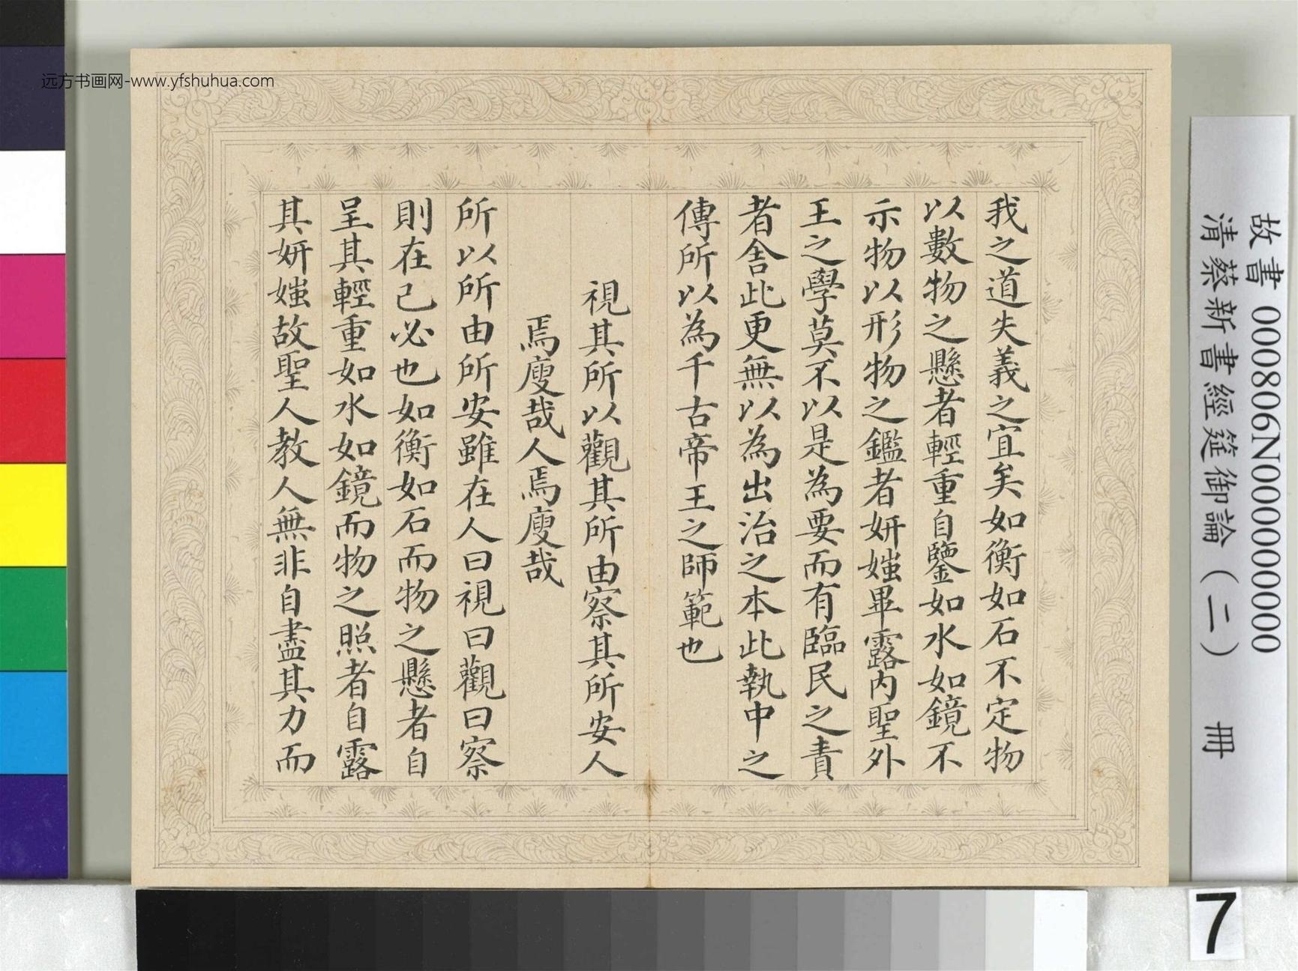 远方书画网-www.yfshuhua.com
我之道失義之宜矣如衡如石不定物
以數物之懸者輕重自鑒如水如鏡不
示物以形物之鑑者妍媸畢露內聖外
王之學莫不以是為要而有臨民之責
者舍此更無以為出治之本此執中之
傳所以為千古帝王之師範也
視其所以觀其所由察其所安人
焉廋哉人焉廋哉
所以所由所安雖在人曰視曰觀曰察
則在己必也如衡如石而物之懸者自
呈其輕重如水如鏡而物之照者自露
其妍媸故聖人教人無非自盡其力而
故書 000806N000000000
清蔡新書經筵御論(二) 冊
7